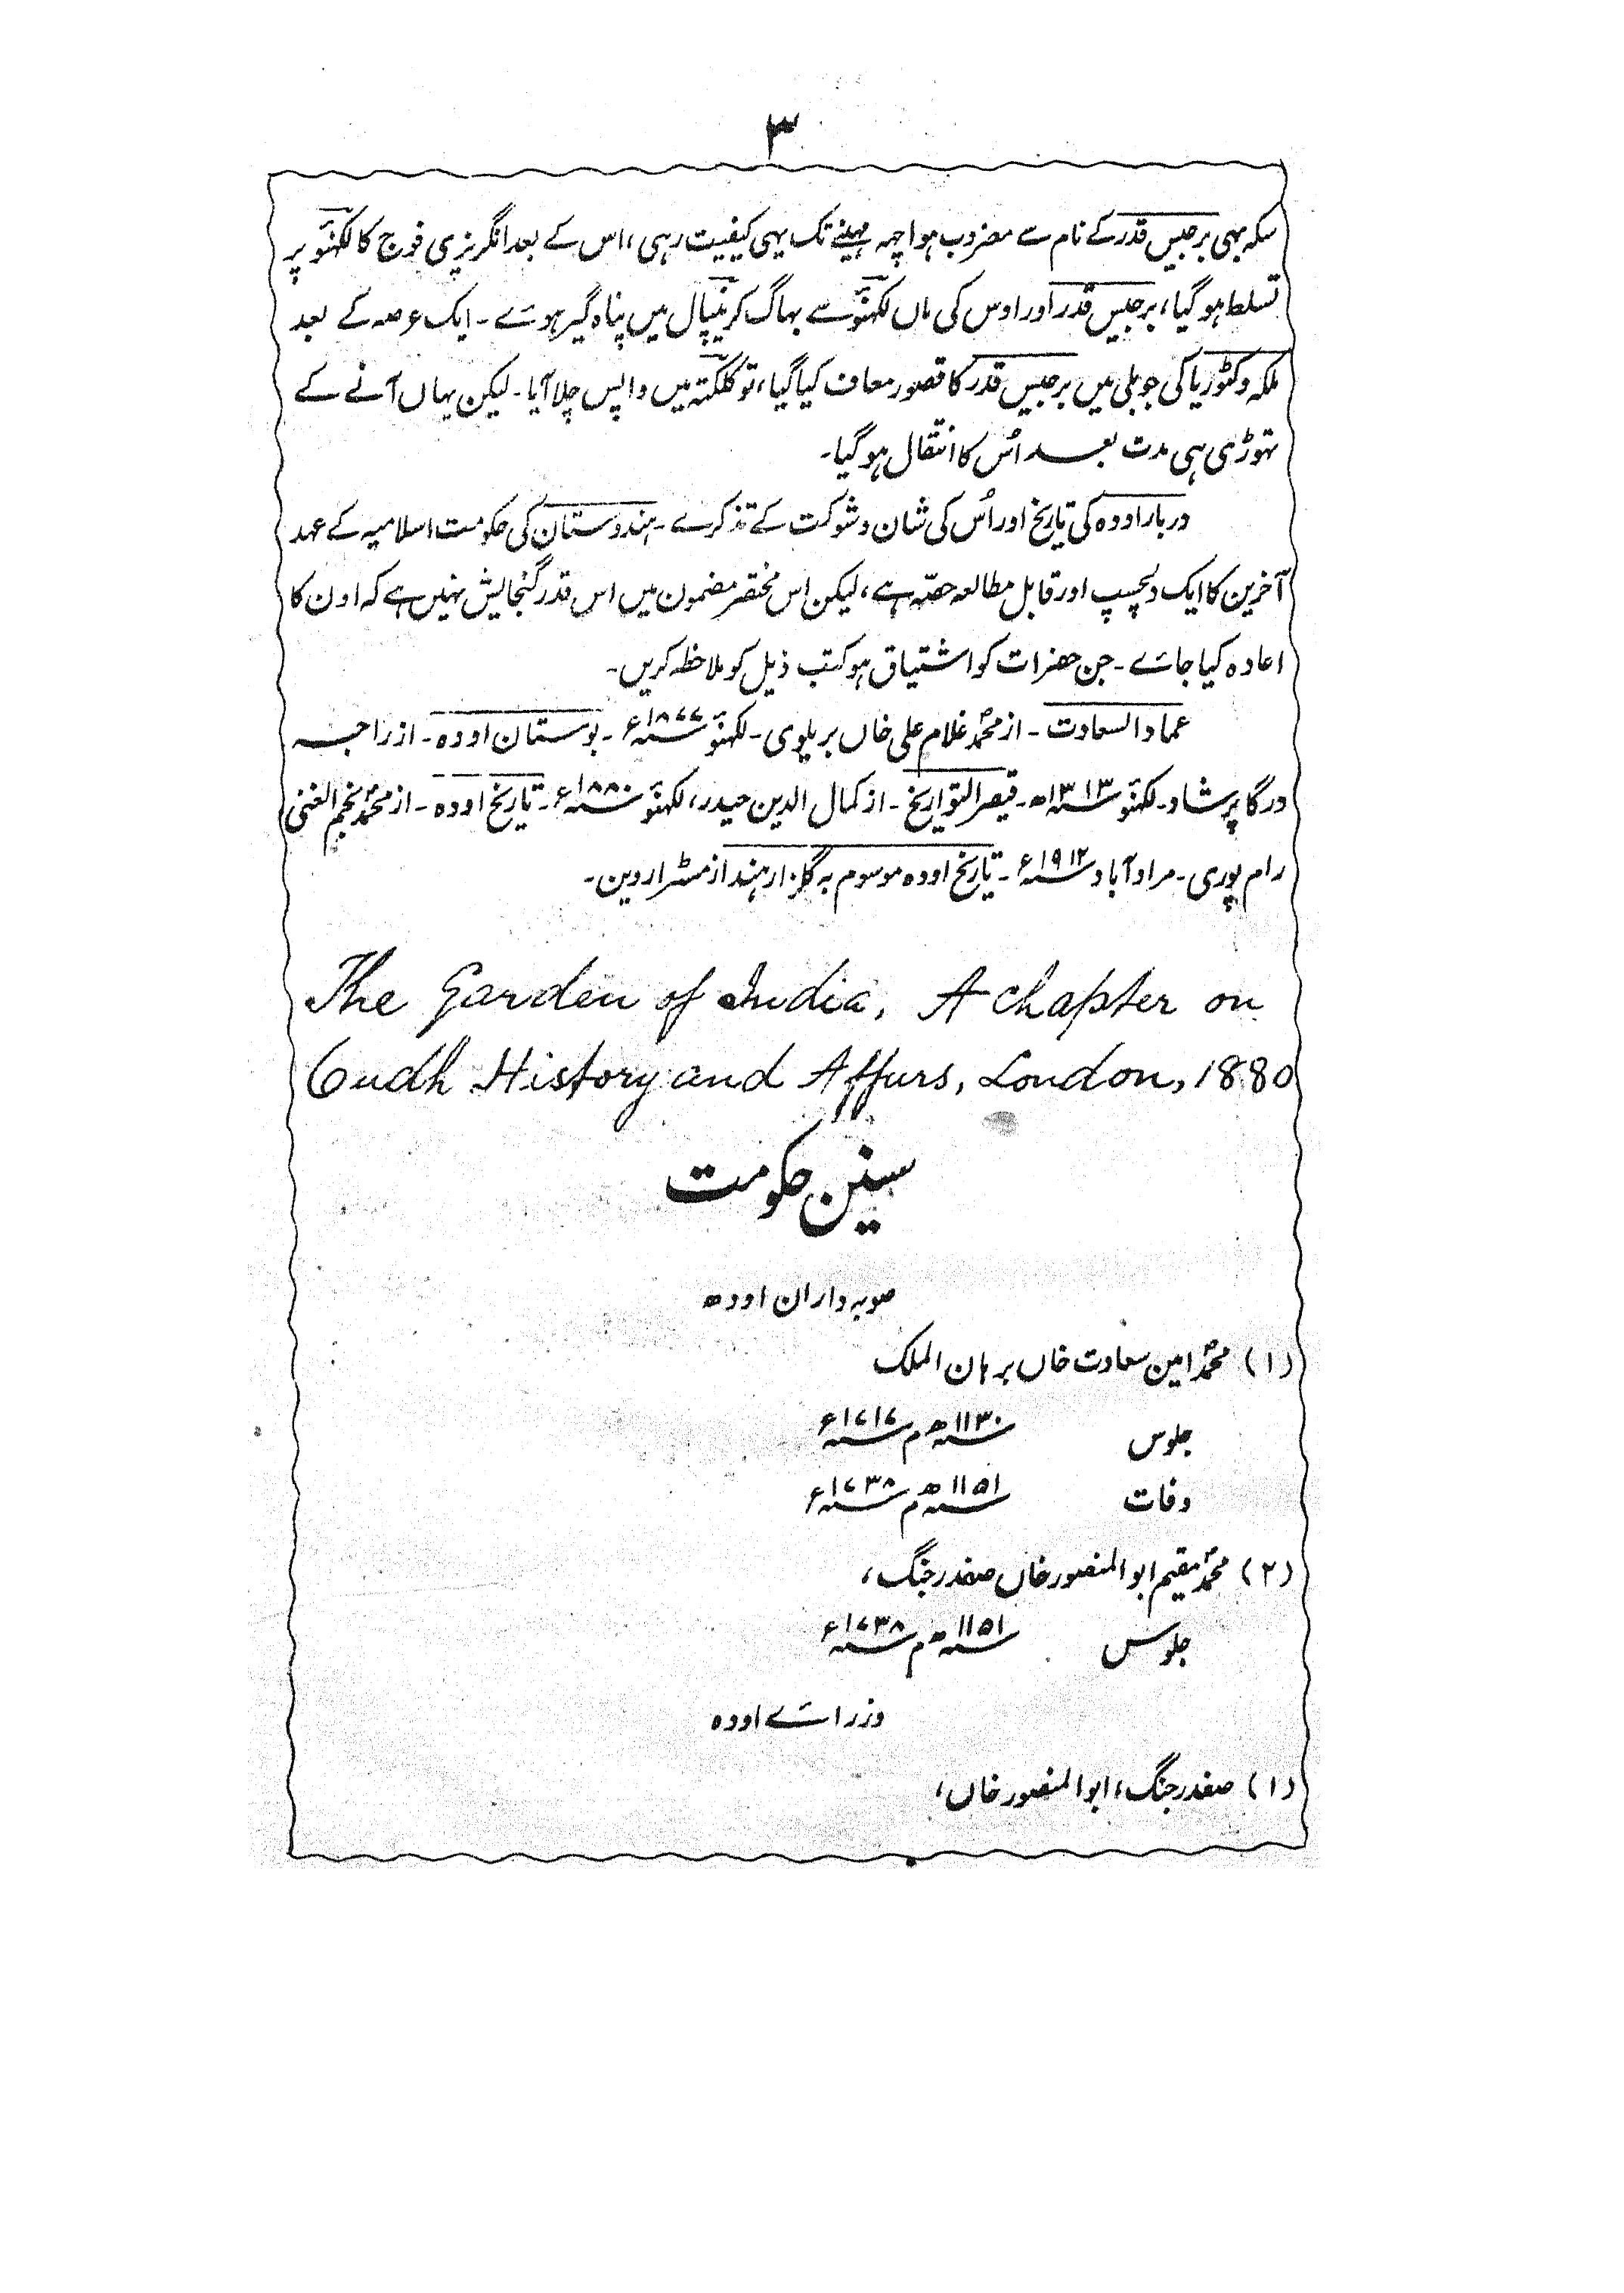 ۳
سکہ بہی برجیس قدر کے نام سے مضروب ہوا چہہ مہینے تک یہی کیفیت رہی، اس کے بعد انگریزی فوج کا لکہنؤ پر
تسلط ہو گیا، برجیس قدر اور اوس کی ماں لکہنؤ سے بہاگ کر نیپال میں پناہ گیر ہوئے۔ ایک عرصہ کے بعد
ملکہ وکٹوریا کی جوبلی میں برجیس قدر کا قصور معاف کیا گیا، تو کلکتہ میں واپس چلا آیا۔ لیکن یہاں آنے کے
تہوڑی ہی مدت بعد اُس کا انتقال ہو گیا۔
دربار اودہ کی تاریخ اور اُس کی شان و شوکت کے تذکرے۔ ہندوستان کی حکومت اسلامیہ کے عہد
آخرین کا ایک دلچسپ اور قابل مطالعہ حصّہ ہے، لیکن اس مختصر مضمون میں اس قدر گنجایش نہیں ہے کہ اون کا
اعادہ کیا جائے۔ جن حضرات کو اشتیاق ہو کتب ذیل کو ملاحظہ کریں۔
عماد السعادت۔ از محمد غلام علی خاں بریلوی۔ لکہنؤ سنہ ۱۸۷۷ء۔ بوستان اودہ۔ از راجہ
درگا پرشاد۔ لکہنؤ سنہ ۱۳۱۳ھ۔ قیصر التواریخ۔ از کمال الدین حیدر، لکہنؤ سنہ ۱۸۸۰ء۔ تاریخ اودہ۔ از محمد نجم الغنی
رام پوری۔ مراد آباد سنہ ۱۹۱۲ء۔ تاریخ اودہ موسوم بہ گلزار ہند از مسٹر اروین۔
The Garden of India, A chapter on
Oudh History and Affurs, London, 1880
سنین حکومت
صوبہ داران اودھ
(۱) محمد امین سعادت خاں برہان الملک
جلوس سنہ ۱۱۳۰ھ م سنہ ۱۷۱۷ء
وفات سنہ ۱۱۵۱ھ م سنہ ۱۷۳۸ء
(۲) محمد مقیم ابو المنصور خاں صفدر جنگ،
جلوس سنہ ۱۱۵۱ھ م سنہ ۱۷۳۸ء
وزرائے اودہ
(۱) صفدر جنگ، ابو المنصور خاں،